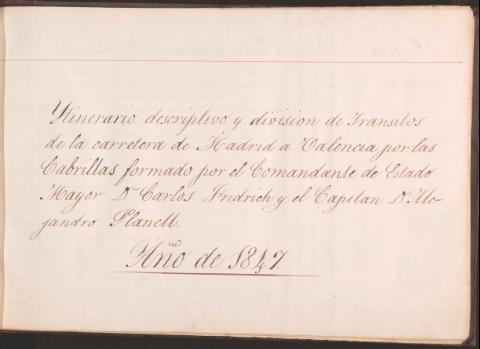 Ytinerario descriptivo y division de Transitos
de la carretera de Madrid a Valencia por las
Cabrillas formado por el Comandante de Estado
Mayor Dⁿ Carlos Fridrich y el Capitan Dⁿ Ale-
jandro Planell.
Año de 1847.